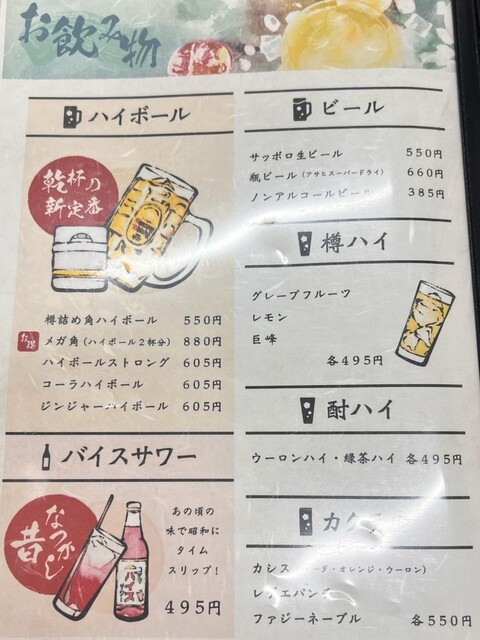 お飲み物
ハイボール
乾杯の
新定番
樽詰め角ハイボール 550円
お得 メガ角(ハイボール2杯分) 880円
ハイボールストロング 605円
コーラハイボール 605円
ジンジャーハイボール 605円
バイスサワー
なつかし
昔
バイス
あの頃の
味で昭和に
タイム
スリップ!
495円
ビール
サッポロ生ビール 550円
瓶ビール(アサヒスーパードライ) 660円
ノンアルコールビール 385円
樽ハイ
グレープフルーツ
レモン
巨峰
各495円
酎ハイ
ウーロンハイ・緑茶ハイ 各495円
カクテ
カシス ーダ・オレンジ・ウーロン)
ファジーネーブル 各550円